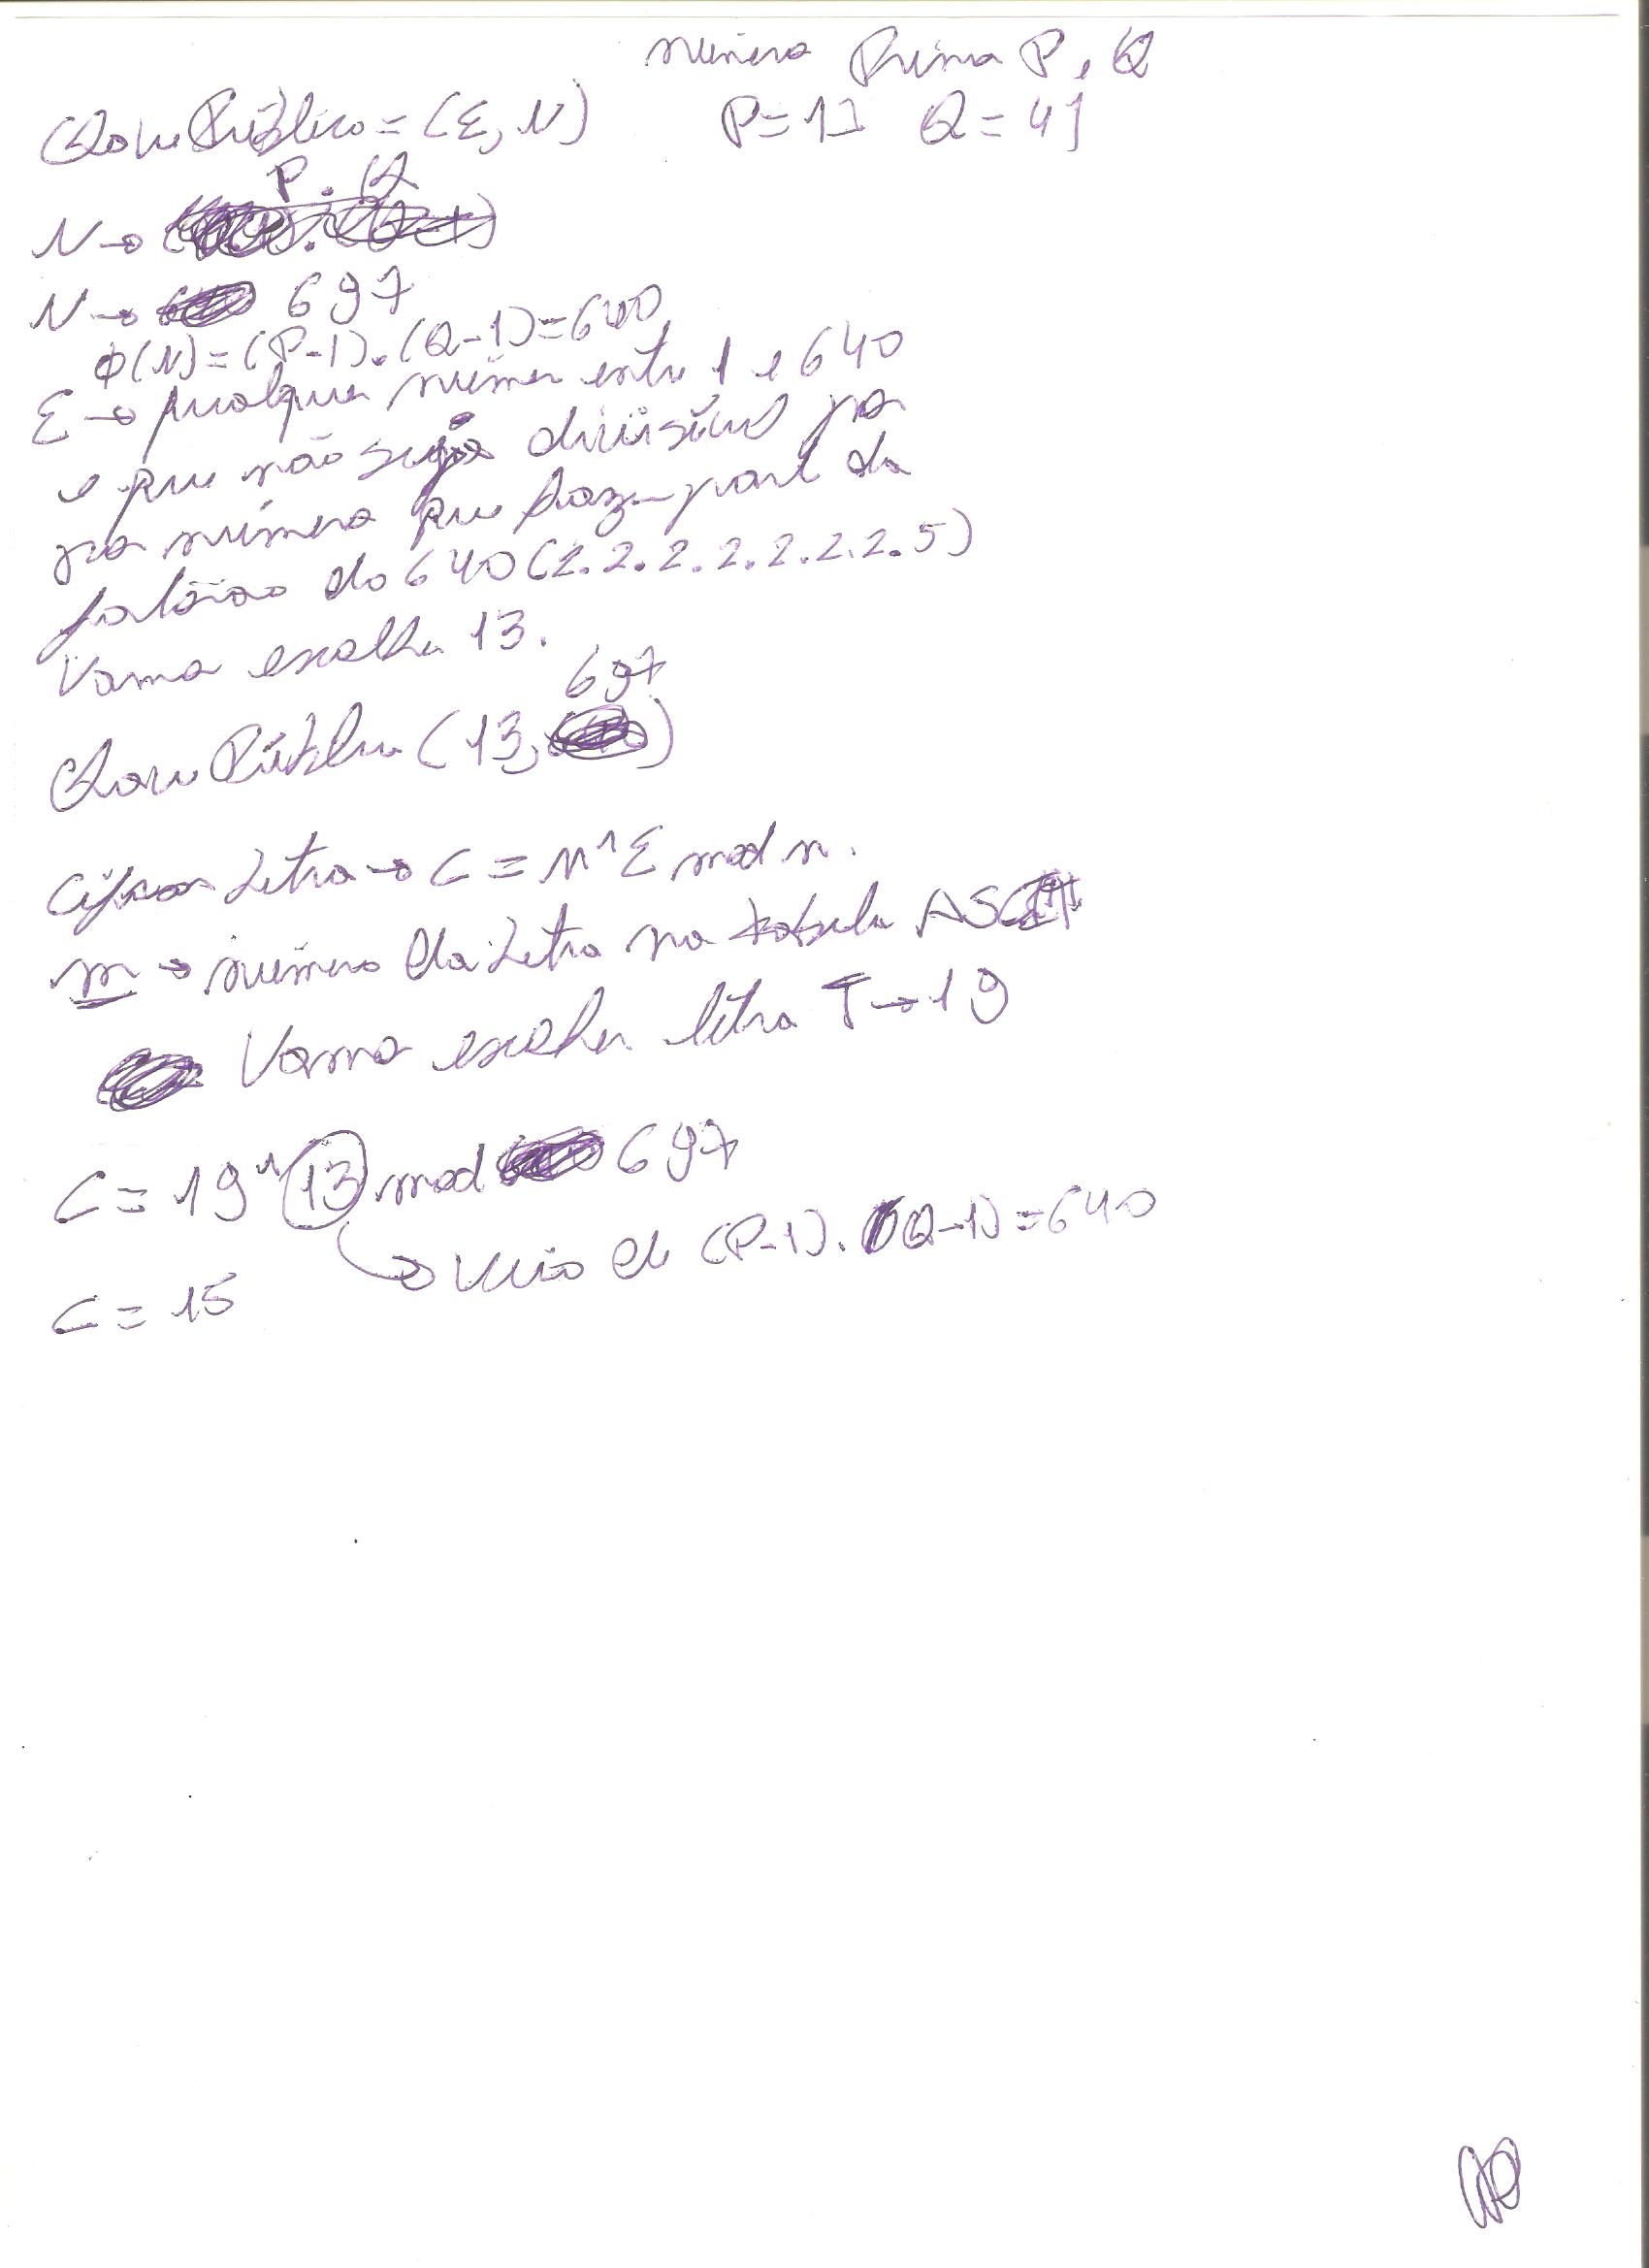 número Primo P, Q
Chave Pública = (E, N) P=17 Q=41
P.Q
N→
N→ 697
φ(N)=(P-1).(Q-1)=640
E→ qualquer número entre 1 e 640
e que não seja divisível por
por número que fazem parte da
fatoração do 640 (2.2.2.2.2.2.2.5)
Vamos escolher 13.
697
Chave Pública (13, )
Cifrar Letra → C = M^E mod n.
m → número da Letra na tabela ASCII
Vamos escolher letra T→19
C = 19^13 mod 697
→ veio de (P-1).(Q-1)=640
C = 15